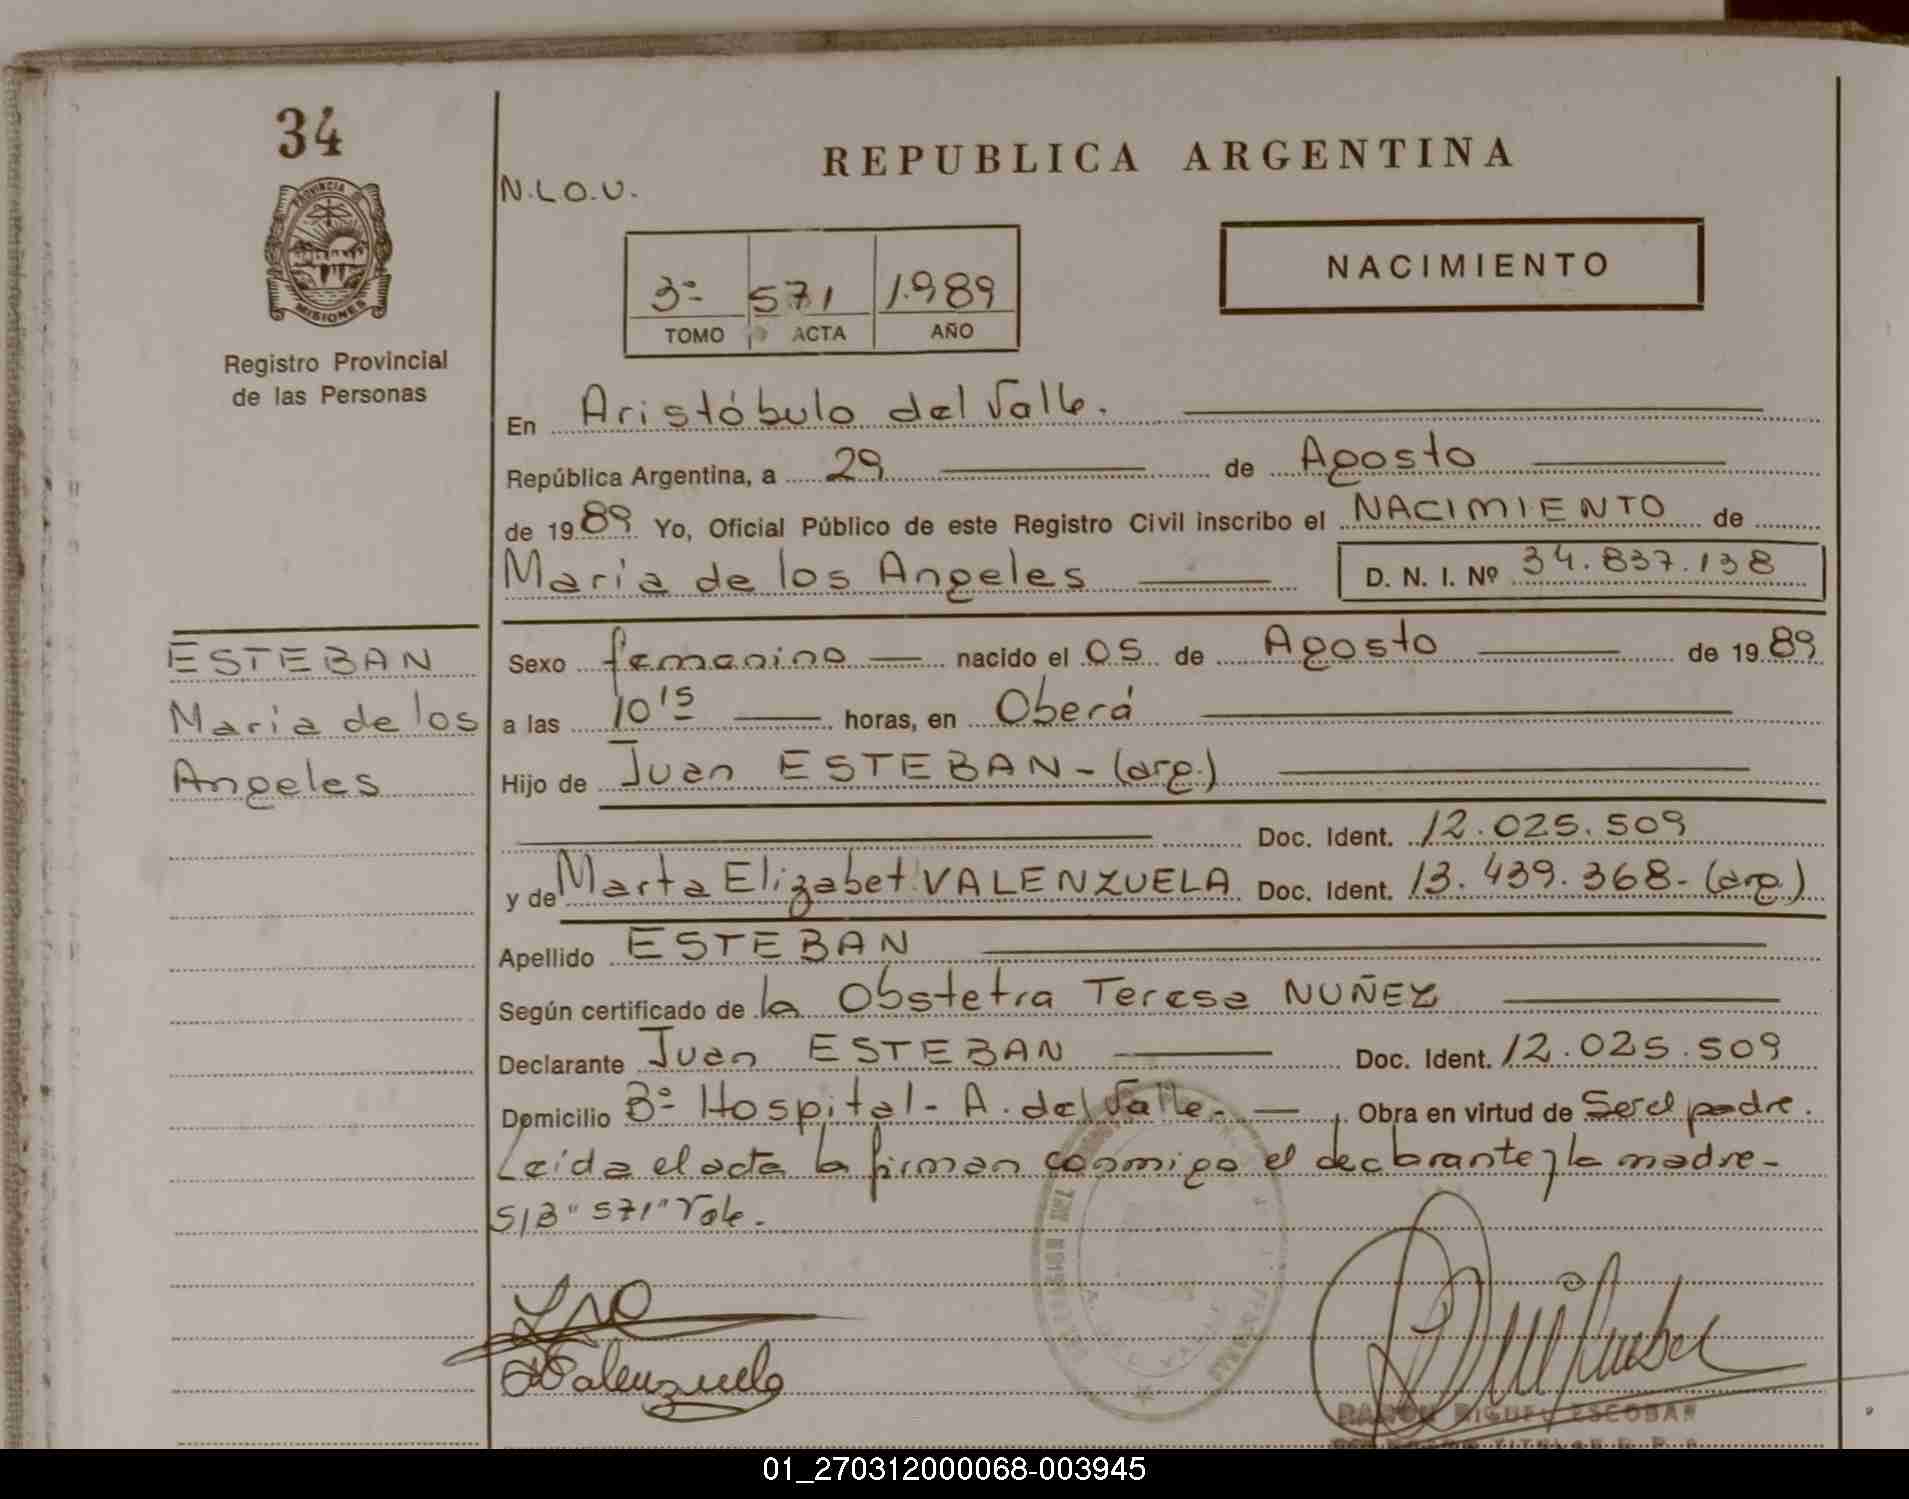 34
PROVINCIA DE
MISIONES
Registro Provincial
de las Personas
REPUBLICA ARGENTINA
N.L.O.U.
3º 571 1.989
TOMO ACTA AÑO
NACIMIENTO
En Aristóbulo del Valle.
República Argentina, a 29 de Agosto
de 1989 Yo, Oficial Público de este Registro Civil inscribo el NACIMIENTO de
Maria de los Angeles D. N. I. Nº 34.837.138
ESTEBAN
Maria de los
Angeles
Sexo femenino nacido el 05 de Agosto de 1989
a las 10 15 horas, en Oberá
Hijo de Juan ESTEBAN - (arg.)
Doc. Ident. 12.025.509
y de Marta Elizabet VALENZUELA Doc. Ident. 13.439.368 - (arg.)
Apellido ESTEBAN
Según certificado de la Obstetra Teresa NUÑEZ
Declarante Juan ESTEBAN Doc. Ident. 12.025.509
Domicilio Bº Hospital - A. del Valle. - Obra en virtud de Ser el padre.
Leida el acta la firman conmigo el declarante y la madre -
S/B "571" Vale.
Valenzuela
RAMON MIGUEL ESCOBAR
01_270312000068-003945